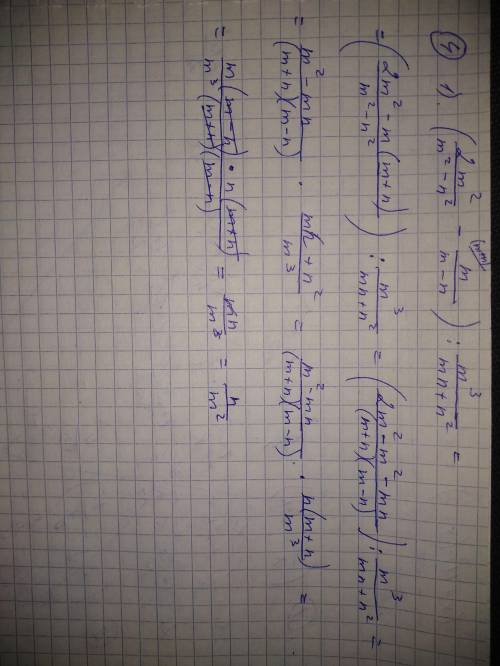 ④ 1). (2m²/(m²-n²) - m/(m-n) (m+n)) : m³/(mn+n²) =
= ((2m² - m(m+n))/(m²-n²)) : m³/(mn+n²) = ((2m² - m² - mn)/((m+n)(m-n))) : m³/(mn+n²) =
= (m² - mn)/((m+n)(m-n)) · (mn+n²)/m³ = (m²-mn)/((m+n)(m-n)) · n(m+n)/m³ =
= m(m-n) · n(m+n)/(m³(m+n)(m-n)) = mn/m³ = n/m²